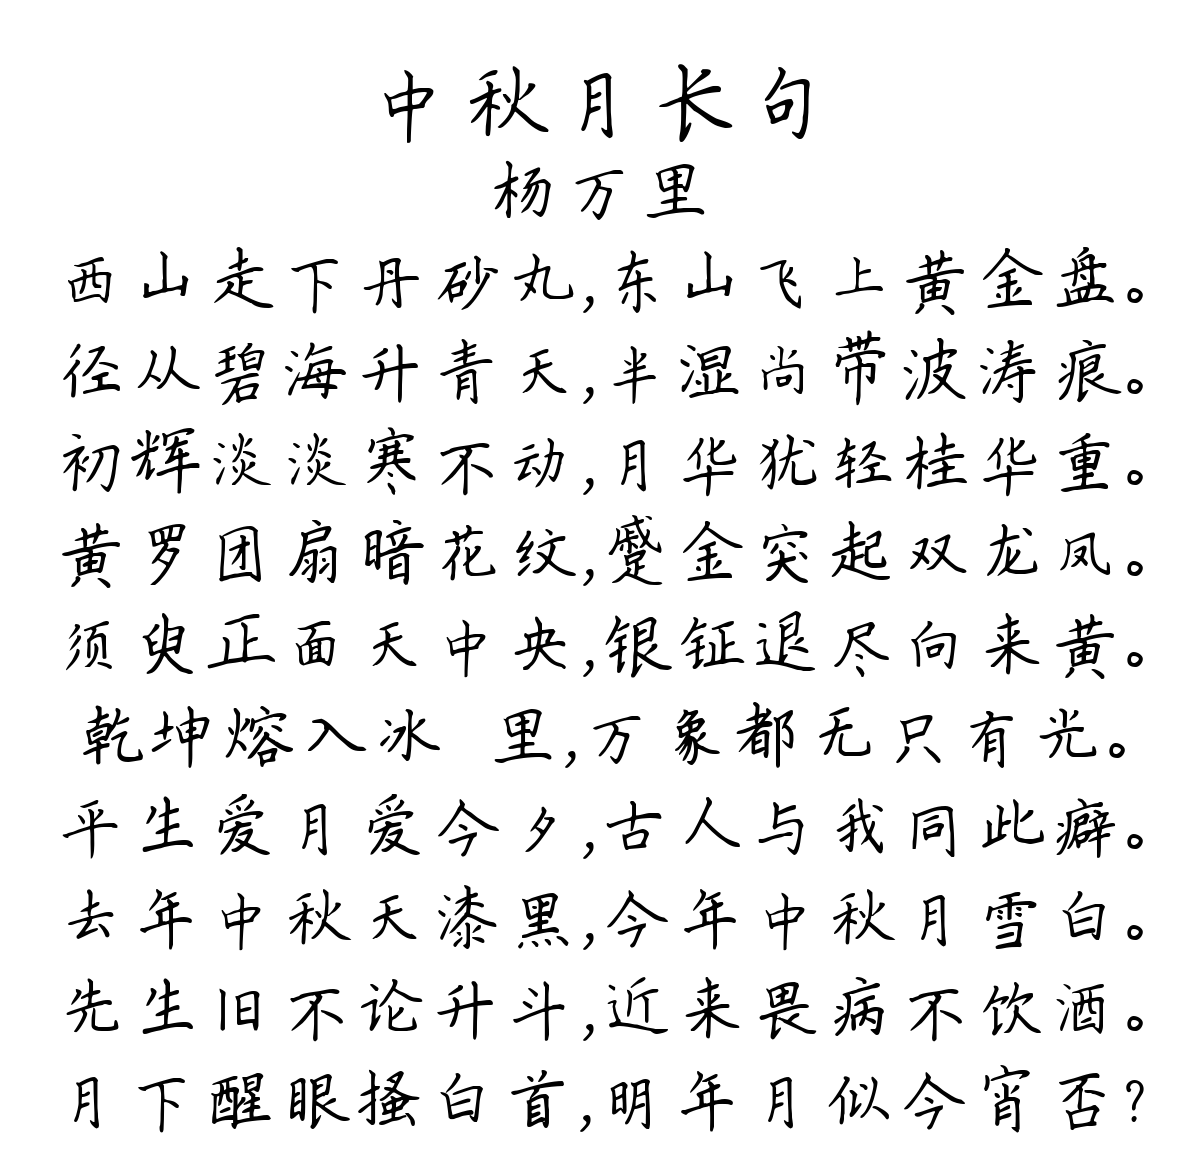 中秋月长句
杨万里
西山走下丹砂丸,东山飞上黄金盘。
径从碧海升青天,半湿尚带波涛痕。
初辉淡淡寒不动,月华犹轻桂华重。
黄罗团扇暗花纹,蹙金突起双龙凤。
须臾正面天中央,银钲退尽向来黄。
乾坤熔入冰 里,万象都无只有光。
平生爱月爱今夕,古人与我同此癖。
去年中秋天漆黑,今年中秋月雪白。
先生旧不论升斗,近来畏病不饮酒。
月下醒眼搔白首,明年月似今宵否?